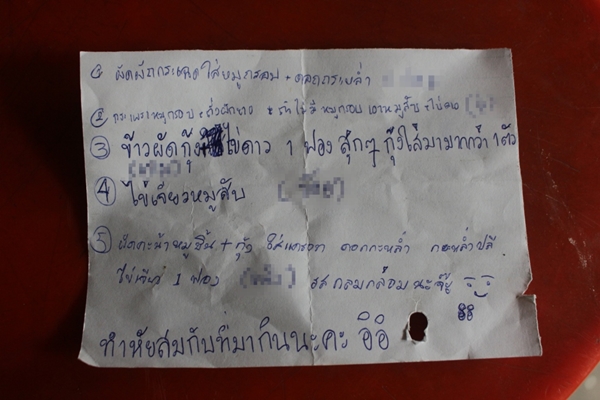 ① ผัดผักกระเฉดใส่หมูกรอบ + ดอกกระหล่ำ
② กระเพราหมูกรอบ + ถ้าไม่มีหมูกรอบ เอาหมูสับ + ไข่ดาว
③ ข้าวผัดกุ้ง ไข่ดาว 1 ฟอง สุกๆ กุ้งใส่มามากกว่า 1 ตัว
④ ไข่เจียวหมูสับ
⑤ ผัดคะน้าหมูชิ้น + กุ้ง ใส่แครอท ดอกกะหล่ำ กะหล่ำปลี
ไข่เจียว 1 ฟอง รสกลมกล่อมนะจ๊ะ
ทำหัยสมกับที่มากินนะคะ อิอิ